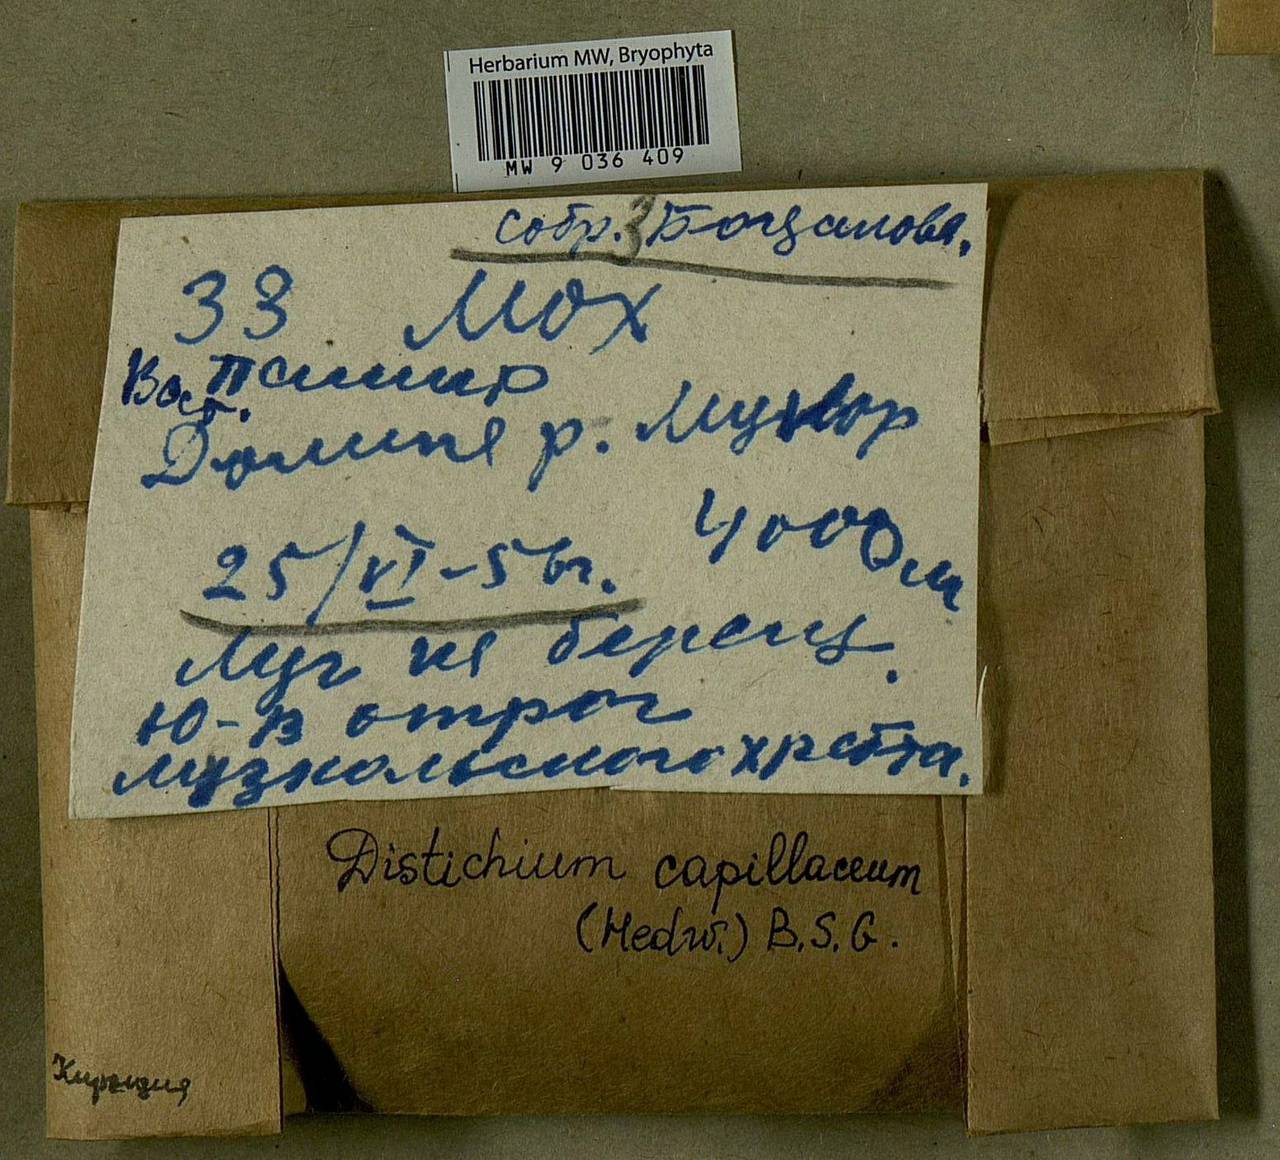 Herbarium MW, Bryophyta
MW 9 036 409
собр. З Богданова.
33 Мох
Вост. Памир
Долина р. Музкор
4000 м
25/VI-56г.
Луг на берегу.
Ю-В отрог
Музкольского хребта.
Distichium capillaceum
(Hedw.) B.S.G.
Киргизия